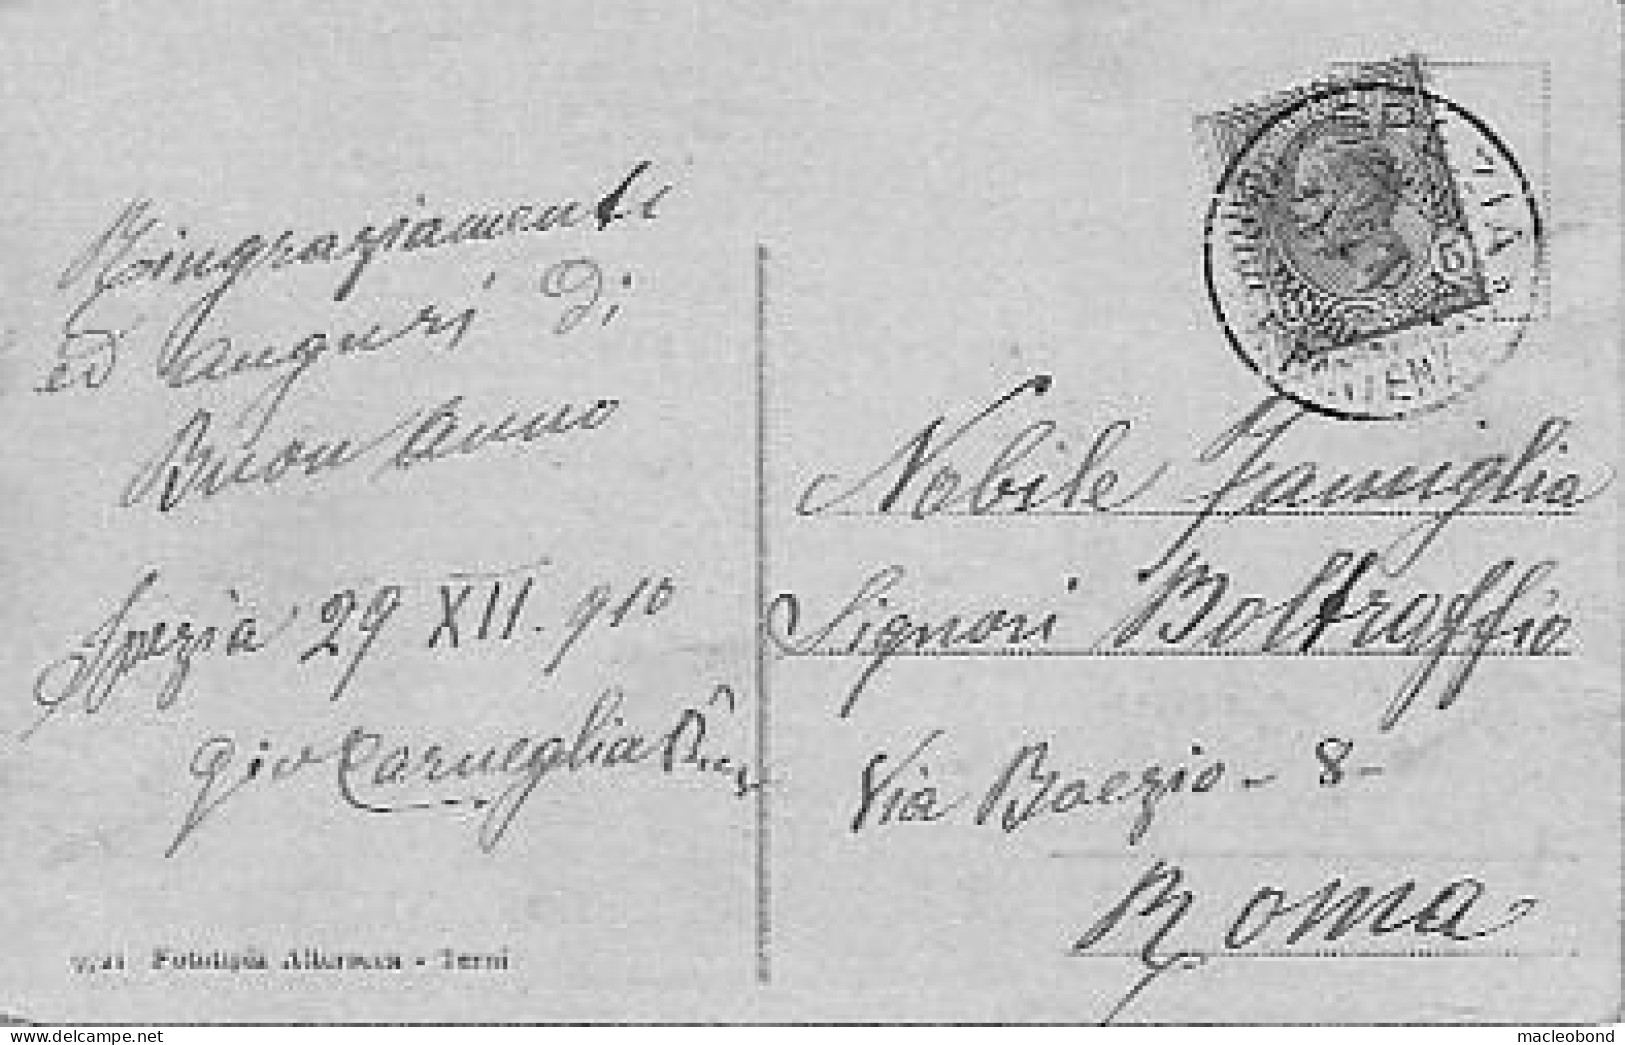 Ringraziamenti
ed auguri di
Buon anno
Spezia 29 XII. 910
Gio Carneglia
Nobile Famiglia
Signori Boltraffio
Via Boezio - 8 -
Roma
Fototipia Alterocca - Terni
delcampe.net
macleobond